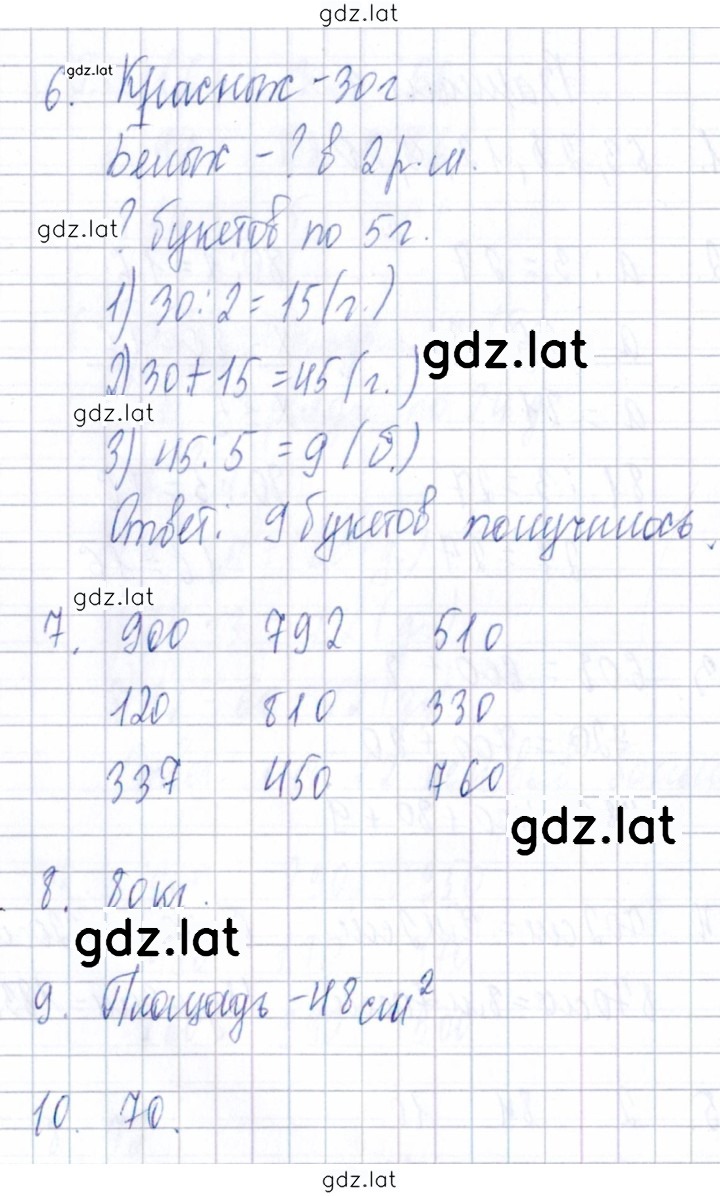 gdz.lat
6. gdz.lat Красных - 30 г.
Белых - ? в 2 р. м.
gdz.lat ? букетов по 5 г.
1) 30 : 2 = 15 (г.)
gdz.lat
2) 30 + 15 = 45 (г.)
gdz.lat
3) 45 : 5 = 9 (б.)
Ответ: 9 букетов получилось.
gdz.lat
7. 900 792 510
120 810 330
337 450 760
gdz.lat
8. 80 кг.
gdz.lat
9. Площадь - 48 см²
10. 70.
gdz.lat